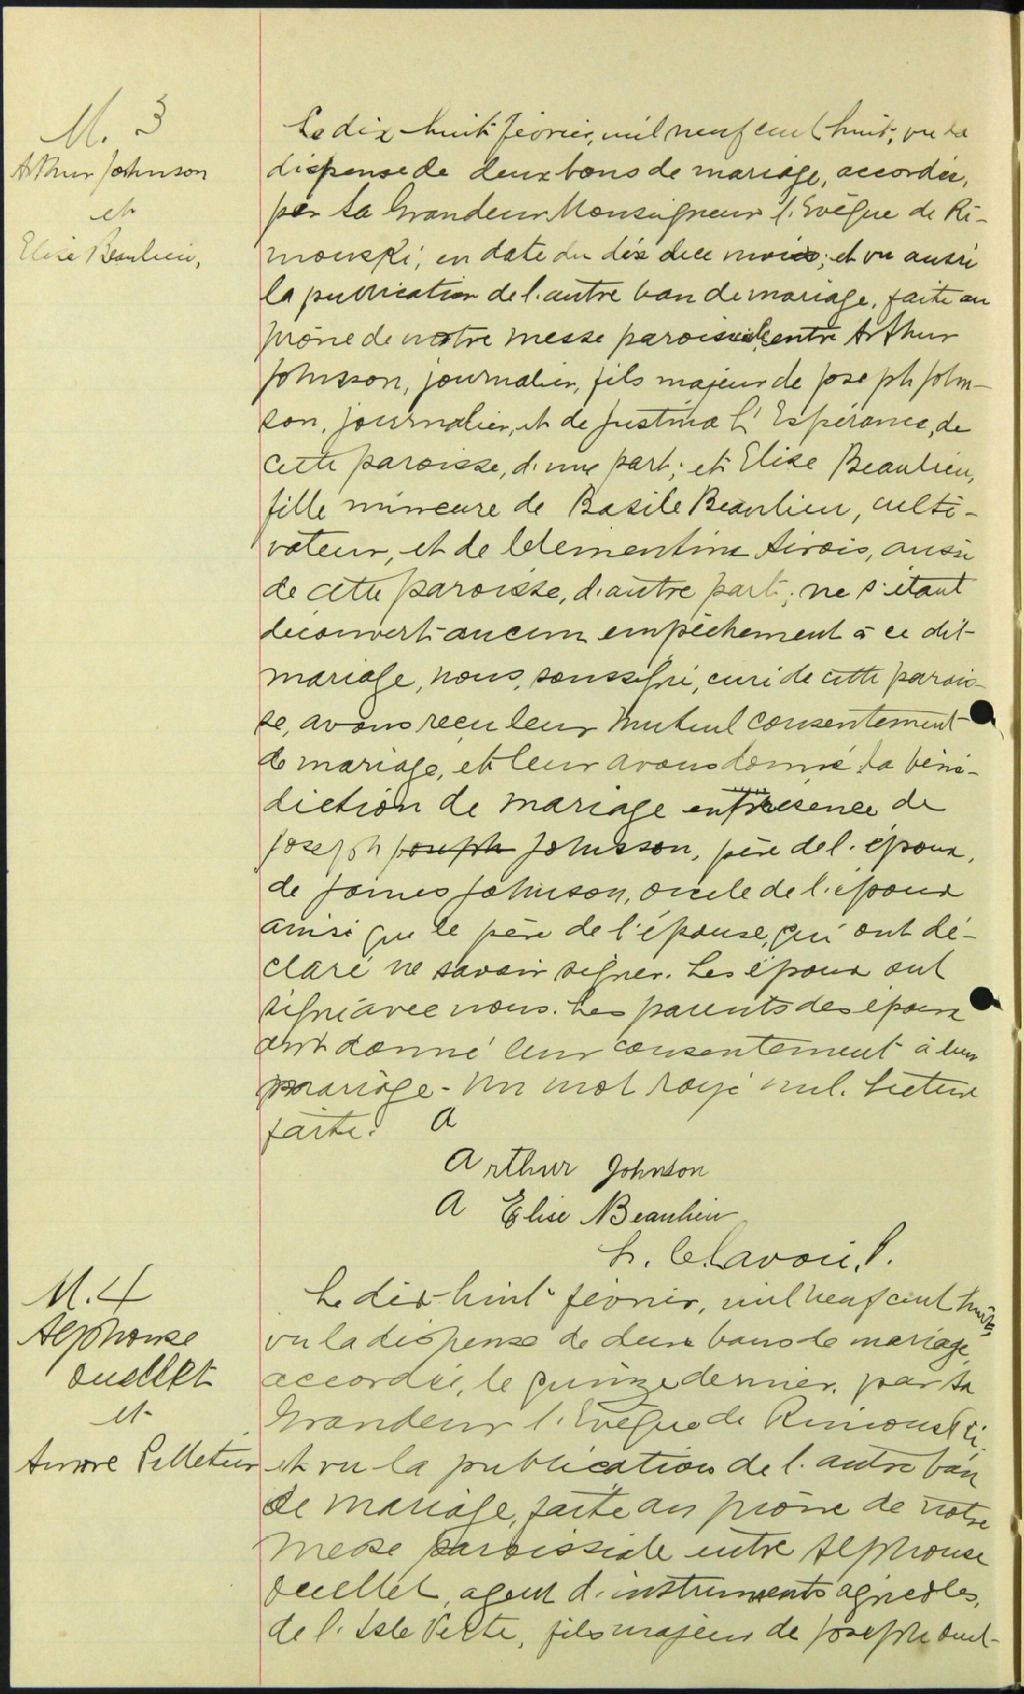 M. 3
Arthur Johnson
et
Elise Beaulieu,
Le dix-huit février, mil neuf cent huit, vu la
dispense de deux bans de mariage, accordée,
par Sa Grandeur Monseigneur l'Evêque de Ri-
mouski, en date du dix de ce mois; et vu aussi
la publication de l'autre ban de mariage, faite au
prône de notre messe paroissiale, entre Arthur
Johnson, journalier, fils majeur de Joseph John-
son, journalier, et de Justina L'Espérance, de
cette paroisse, d'une part; et Elise Beaulieu,
fille mineure de Basile Beaulieu, culti-
vateur, et de Clémentine Sirois, aussi
de cette paroisse, d'autre part; ne s'étant
découvert aucun empêchement à ce dit
mariage, nous, soussigné, curé de cette parois-
se, avons reçu leur mutuel consentement
de mariage, et leur avons donné la béné-
diction de mariage en présence de
Joseph Joseph Johnson, père de l'époux,
de James Johnson, oncle de l'époux
ainsi que le père de l'épouse, qui ont dé-
claré ne savoir signer. Les époux ont
signé avec nous. Les parents des époux
ont donné leur consentement à leur
mariage - Un mot rayé nul. Lecture
faite. A
Arthur Johnson
A Elise Beaulieu
L. C. Lavoie, P.
M. 4
Alphonse
Ouellet
et
Aurore Pelletier
Le dix-huit février, mil neuf cent huit,
vu la dispense de deux bans de mariage,
accordée, le quinze dernier, par Sa
Grandeur l'Evêque de Rimouski,
et vu la publication de l'autre ban
de mariage, faite au prône de notre
messe paroissiale entre Alphonse
Ouellet, agent d'instruments agricoles,
de l'Isle Verte, fils majeur de Joseph Ouel-